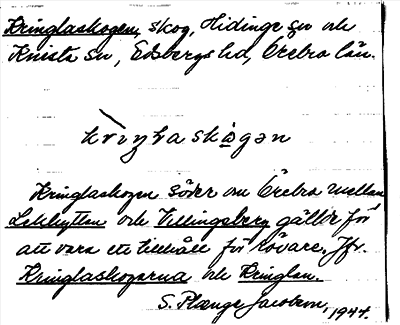 Kringlaskogen, skog, Hidinge sn och
Knista sn, Edsbergs hd, Örebro län.
Kringlaskogen söder om Örebro mellan
Lekhyttan och Villingsberg gäller för
att vara ett tillhåll för rövare. Jfr.
Kringlaskogarna och Kringlan.
S. Plænge Jacobson, 1944.